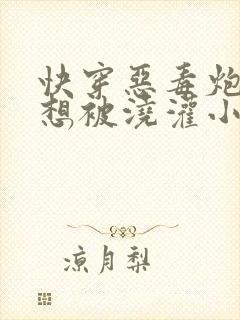 快穿恶毒炮
想被浇灌小
凉月梨